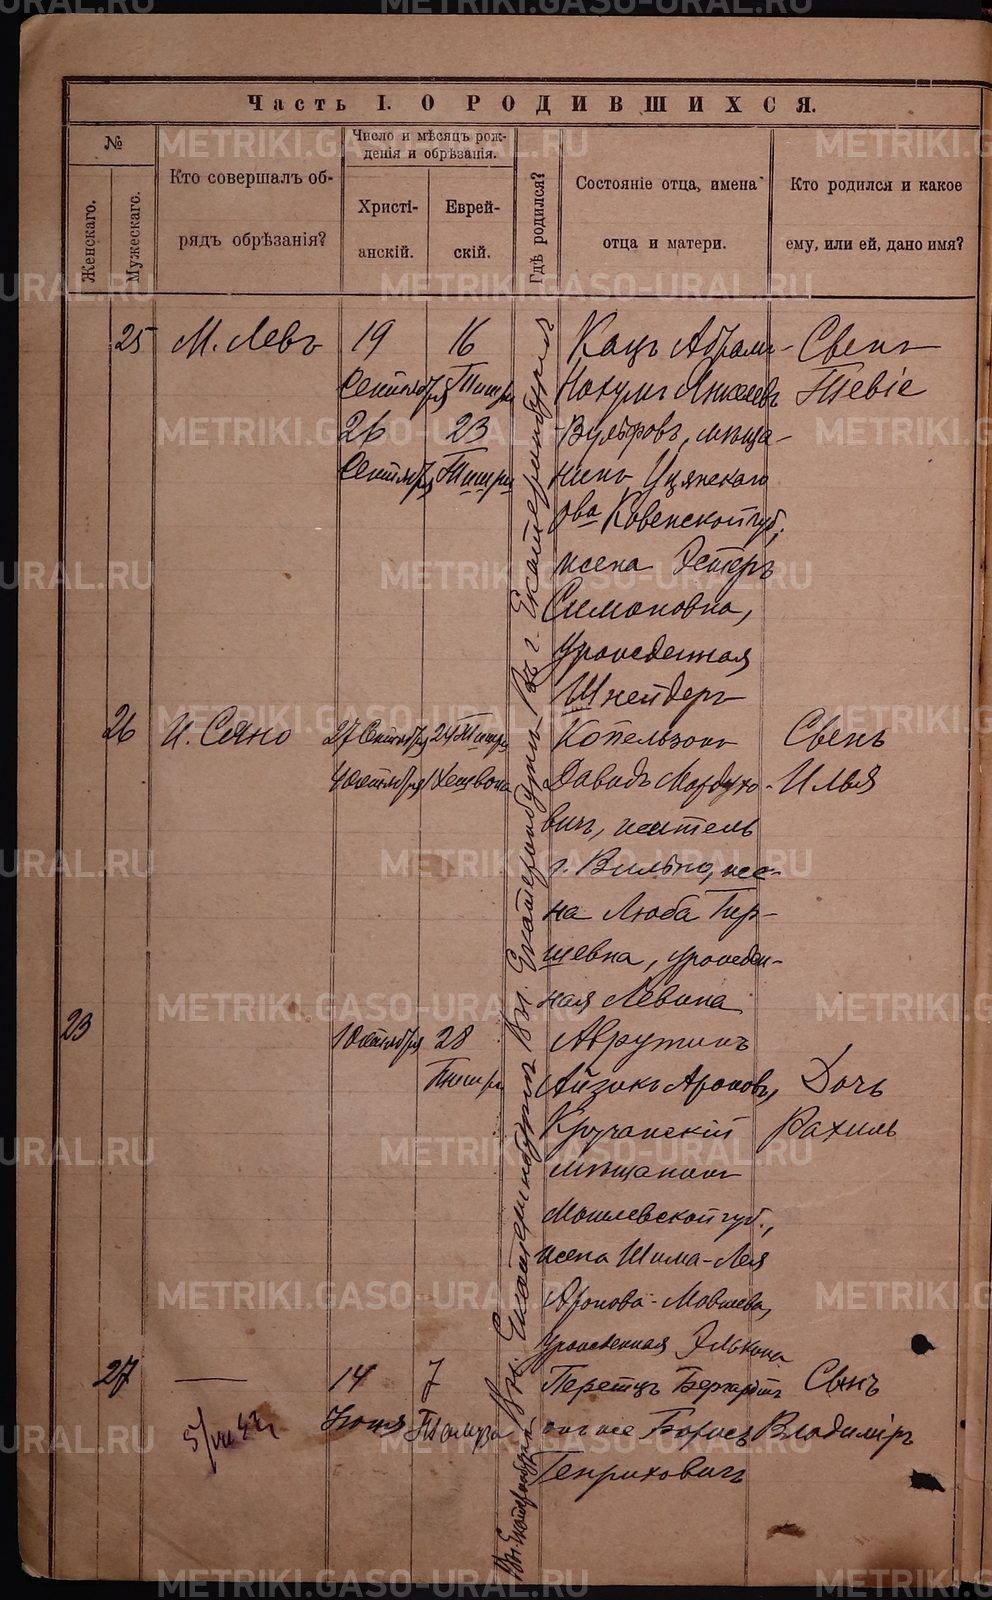 Часть I. О РОДИВШИХСЯ.
№
Женскаго.
Мужескаго.
Кто совершалъ об-
рядъ обрѣзанія?
Число и мѣсяцъ рож-
денія и обрѣзанія.
Христі-
анскій.
Еврей-
скій.
Гдѣ родился?
Состояніе отца, имена
отца и матери.
Кто родился и какое
ему, или ей, дано имя?
25 М. Левъ
19
Сентября
26
Сентября
16
Тишри
23
Тишри
Въ г. Екатеринбургѣ
Кацъ Абрамъ-
Нохумъ Янкелевъ
Вульфовъ, мѣща-
нинъ Уцянскаго
о-ва Ковенской губ.,
жена Эстеръ
Симоновна,
урожденная
Шнейдеръ
Сынъ
Тевіе
26 И. Сяно
27 Сентября
4 Октября
24 Тишри
Въ г. Екатеринбургѣ
Копельзонъ
Давидъ Мордухо-
вичъ, житель
г. Вильно, же-
на Люба Гир-
шевна, урожден-
ная Левина
Сынъ
Илья
23
1 Октября
28
Тишри
Въ г. Екатеринбургѣ
Аврутинъ
Айзикъ Ароновъ,
мѣщанинъ
Могилевской губ.,
жена Шима-Лея
Аронова-Мовшева,
урожденная
Дочь
Рахиль
27 —
14
Іюня
7
Тамуза
Въ г. Екатеринбургѣ
Перетцъ Бернгардтъ
онъ же Борисъ
Генриховичъ
Сынъ
Владиміръ
METRIKI.GASO-URAL.RU